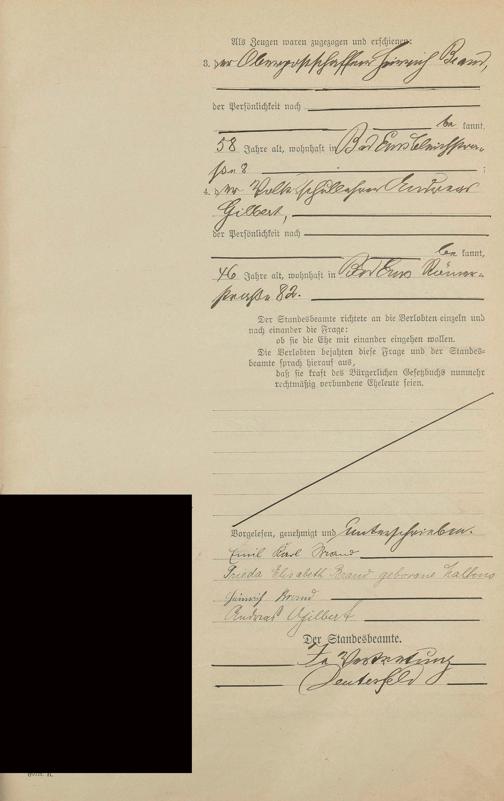 Als Zeugen waren zugezogen und erschienen:
3. der Oberpostschaffner Heinrich Brand,
der Persönlichkeit nach
be kannt,
58 Jahre alt, wohnhaft in Bad Ems Bleichstra-
ße 8 ;
4. der Volksschullehrer Andreas
Gilbert,
der Persönlichkeit nach
be kannt,
46 Jahre alt, wohnhaft in Bad Ems Römer-
straße 82.
Der Standesbeamte richtete an die Verlobten einzeln und
nach einander die Frage:
ob sie die Ehe mit einander eingehen wollen.
Die Verlobten bejahten diese Frage und der Standes-
beamte sprach hierauf aus,
daß sie kraft des Bürgerlichen Gesetzbuchs nunmehr
rechtmäßig verbundene Eheleute seien.
Vorgelesen, genehmigt und unterschrieben.
Emil Karl Brand
Frieda Elisabeth Brand geborene
Heinrich Brand
Andreas Gilbert
Der Standesbeamte.
In Vertretung